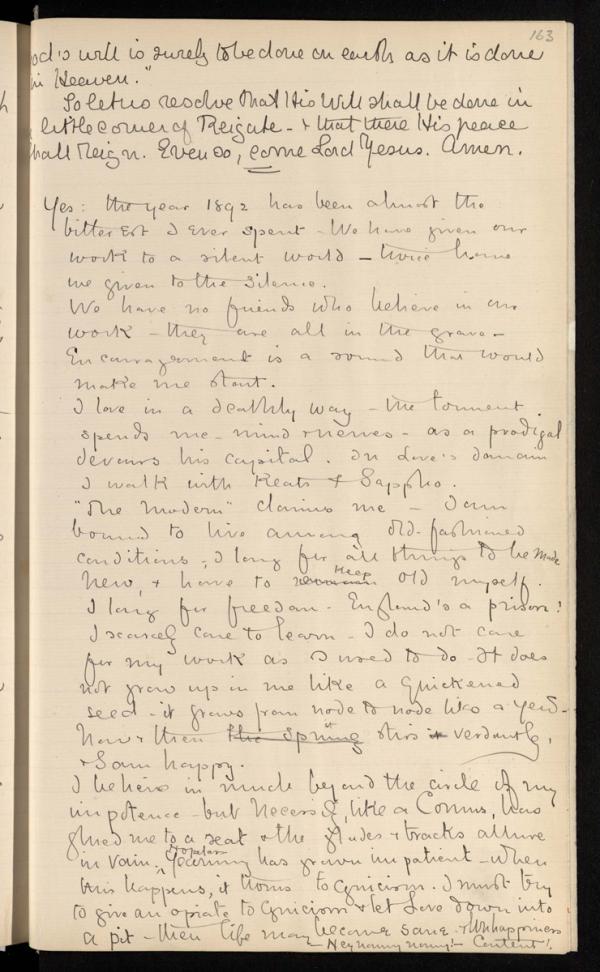 163
od's will is surely to be done on earth as it is done
in Heaven."
So let us resolve that His Will shall be done in
little corner of Reigate - & that there His peace
shall reign. Even so, come Lord Jesus. Amen.
Yes: the year 1892 has been almost the
bitterest I ever spent - We have given our
work to a silent world - twice have
we given to the silence.
We have no friends who believe in our
work - they are all in the grave -
Encouragement is a sound that would
make me start.
I love in a deathly way - the torment
spends me - mind & nerves - as a prodigal
devours his capital. In Love's domain
I walk with Keats & Sappho.
"The Modern" claims me - I am
bound to live among old-fashioned
conditions, I long for all things to be made
New, & have to Keep old myself.
I long for freedom - England's a prison!
I scarcely care to learn - I do not care
for my work as I used to do - It does
not grow up in me like a Quickened
seed - it grows from node to node like a
Now & then the spring it stirs it verdantly,
& I am happy.
I believe in much beyond the circle of my
impotence - but Necessity, like a Comus, has
glued me to a seat & the glades & tracks allure
in vain. Hopeless Yearning has grown impatient - when
this happens, it turns to Cynicism. I must try
to give an opiate to Cynicism & let Love down into
a pit - then life may become sane - & Unhappiness
- Hey nonny nonny! - Content!